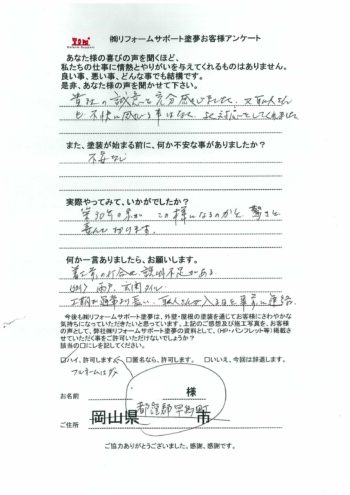 TOM
㈱リフォームサポート塗夢お客様アンケート
あなた様の喜びの声を聞くほど、
私たちの仕事に情熱とやりがいを与えてくれるものはありません。
良い事、悪い事、どんな事でも結構です。
是非、あなた様の声を聞かせて下さい。
貴社の誠意を充分感じました。又
も、不快に感じる事はなく、よく対応をしてくれました
また、塗装が始まる前に、何か不安な事がありましたか？
不安なし
実際やってみて、いかがでしたか？
築30年の家が この様になるのかと 驚きと
喜んで居ります。
何か一言ありましたら、お願いします。
着工前の打合せ 説明不足がある
例） 雨戸、玄関タイル
今後も㈱リフォームサポート塗夢は、外壁・屋根の塗装を通じてお客様にさわやかな
気持ちになっていただきたいと思っています。上記のご感想及び施工写真を、お客様
の声として、弊社㈱リフォームサポート塗夢の資料として、(HP・パンフレット等)掲載さ
せていただく事をご許可いただけないでしょうか？
該当の□に✓を記してください。
□ハイ、許可します □匿名なら、許可します。 □いいえ、今回は辞退します。
フルネームはダメ
お名前 様
都窪郡早島町
ご住所 岡山県 市
ご協力ありがとうございました。感謝、感謝です。